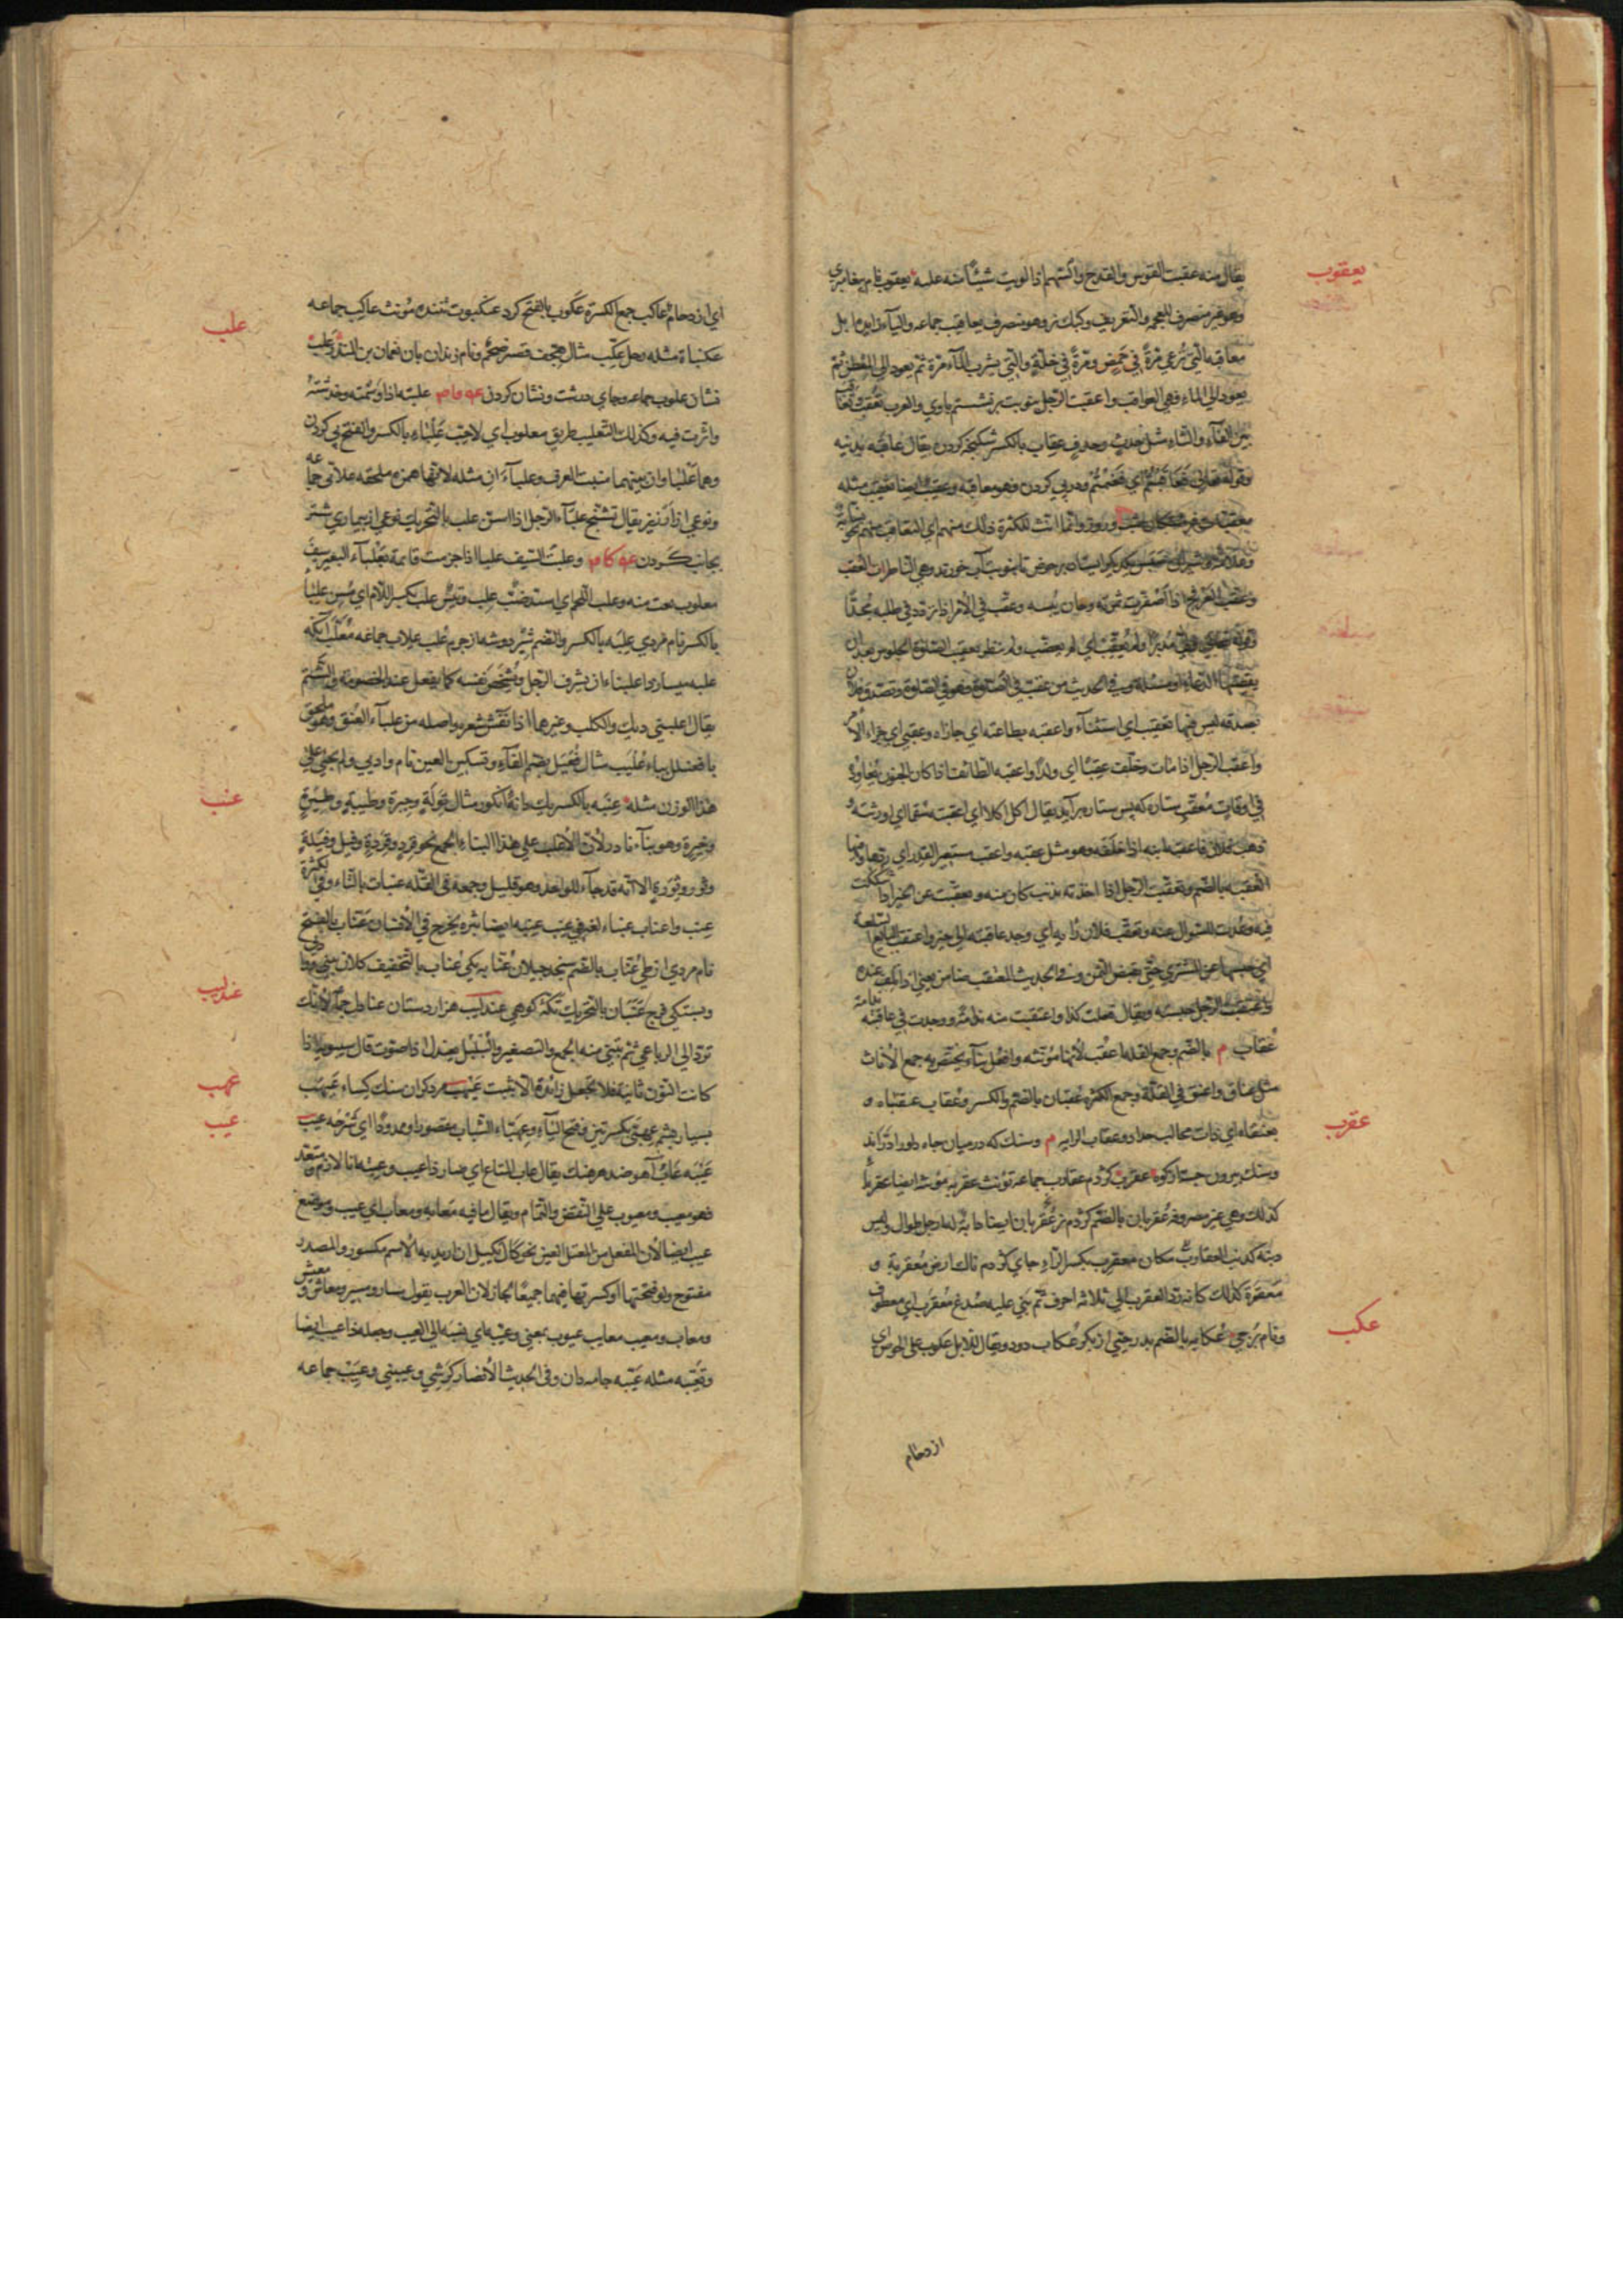 يعقوب
يقال منه عقبت القوس والقدح والسهم اذا لويت شيئًا منه عليه يعقوب نام پيغامبری
وهو غير منصرف للعجمه والتعريف وكبك نر وهو منصرف يعاقيب جماعه
معاقبه التي ترعي مرةً في حمض ومرةً في خلّةٍ والتي يشرب المآء مرة ثم يعود الي المعطن ثم
يعود الي الماء فهي العواقب واعقبت الرجل بنوبت برنشستم باوي والعرب تعقب
بين الفآء والثاء مثل جدث وجدف عقاب بالكسر شكنجه كردن يقال عاقبه بذنبه
وقوله تعالي فعاقبتم اي فغنمتم ودر پي كردن فهو معاقبه وعقيب ايضا تعقيب مثله
وانما انث للكثرة ذلك منهم
بر حوض تا بنوبت آب خورند وهي الناظرات العقب
اذا اصفرت ثمرته وحان يبسه وعقب في الامر اذا تردد في طلبه مجدًا
مدبرًا ولم يعقب اي لم يعطف ولم ينتظر تعقيب الصلوة الجلوس بعد ان
يقضيها وفي الحديث من عقب في الصلوة فهو في الصلوة وتصدق فلان
بصدقه ليس فيها تعقيب اي استثنآء واعقبه بطاعته اي جازاه وعقبي اي جزاء الامر
واعقب الرجل اذا مات وخلّف عقبًا اي ولدًا واعقبه الطائف اذا كان الجنون يعاوده
في اوقات معقب ستاره كه پس ستاره برآيد يقال اكل اكلا اي اعقبته سقما اي اورثته
ذهب فلان فاعقبه ابنه اذا خلفه وهو مثل عقبه واعقب مستعير القدر اي ردها وفيها
العقبه بالضم وتعقبت الرجل اذا اخذته بذنب كان منه وتعقبت عن الخبر اذا شككت
فيه وعدت للسوال عنه وتعقب فلان رأيه اي وجد عاقبته الي خير واعتقب البايع السلعة
اي حبسها عن المشتري حتي يقبض الثمن وفي الحديث المعتقب ضامن يعني اذا تلف عنده
واعتقبت الرجل حبسته ويقال فعلت كذا واعتقبت منه ندامة اي وجدت في عاقبته
عُقاب م بالضم وجمع القله اعقب لأنها مؤنثه وافعل بنآء يختص به جمع الأناث
مثل عناق واعنق في القلّة وجمع الكثره عقبان بالضم والكسر وعقاب عقنباه و
عقرب
بعنقاه اي ذات مخالب حداد وعقاب الرايه م وسنك كه درميان چاه
وسنك بيرون جسته از كوه عقرب كژدم عقارب جماعه تؤنث عقربه مؤنث ايضا عقرباء
كذلك وهي غير مصروفه عقربان بالضم كژدم نر عقربان ايضا دابه لها رجل طوال وليس
ذنبه كذنب العقارب مكان معقرب بكسر الراء جاي كژدم ناك ارض معقربة و
معقرة كذلك كانه رد العقرب الي ثلاثه احرف ثم بني عليه صدغ معقرب اي معطوف
عكب
ونام برجي عكابه بالضم پدر حيي از بكر عكاب دود ويقال للابل عكوب علي الحوض اي
ازدحام
علب
اي ازدحام عاكب جمع الكسرة عكوب بالفتح كرد عنكبوت تننده مؤنث عناكيب جماعه
عكنباة مثله رجل عكب مثال هجف قصير ضخم ونام زندان بان نعمان بن المنذر علب
نشان علوب جماعه وجاي درشت ونشان كردن علبته اذا وسمته وخدشته
واثرت فيه وكذلك التعليب طريق معلوب اي لاحب علباء بالكسر والفتح پي كردن
وهما علباوان بينهما منبت العرف وعلباءان مثله لانها همزه ملحقه علابي جماعه
ونوعي از ارزيز يقال تشنج علبآء الرجل اذا اسن علب بالتحريك نوعي از بيماري شتر
بجانب كردن وعلبت السيف علبا اذا حزمت قائمة بعلبآء البعير سيف
معلوب نعت منه وعلب اللحم اي اشتد ضب علب وتيس علب بكسر اللام اي مسن علبا
بالكسر نام مردي علبه بالكسر والضم شير دوشه از چرم علب علاب جماعه معلب آنكه
علبه ميسازد اعلنباء ان يشرف الرجل ويشخص نفسه كما يفعل عند الخصومة والشتم
يقال اعلنبي ديك والكلب وغيرهما اذا نفش شعره واصله من علبآء العنق وهو ملحق
بافعنلل بياء عليب مثال فعيل بضم الفآء وتسكين العين نام وادي ولم يجئ علي
عنب
هذا الوزن مثله عنبه بالكسر يك دانۀ انكور مثال تولة وحبرة وطيبة وطيرة
وخيرة وهو بنآء نادر لان الأغلب علي هذا البناء الجمع نحو قرد وقردة وفيل وفيلة
وثور وثورة الا انه قد جآء للواحد وهو قليل وجمعه في القله عنبات بالتاء وفي الكثرة
عنب واعناب عنباء لغه في عنب عنبه ايضا بثره يخرج في الانسان عناب بالفتح
عندليب
نام مردي از طي عناب بالضم سنجد جيلان عنابه يكي عناب بالتخفيف كلان بيني
وبستكي فرج عنبان بالتحريك تكۀ كوهي عندليب هزاردستان عنادل جماعه لانك
تردّ الي الرباعي ثم تبني منه الجمع والتصغير والبلبل يعندل اذا صوت قال سيبويه اذا
عهب
كانت النون ثانية فلا تجعل زايدة الا بثبت عيهب مرد كران سنك كساء عيهب
عيب
بسيار پشم عهبي بكسرتين وفتح الباء وعهباء الشباب مقصورا وممدودًا اي شرخه عيب
عيبه عاب آهو ضد هرهنك يقال عاب المتاع اي صار ذا عيب وعبته انا لازم ومتعد
فهو معيب ومعيوب علي النقض والتمام ويقال ما فيه معابه ومعاب اي عيب وموضع
عيب ايضا لان المفعل من المعتل العين نحو كال يكيل ان اريد به الاسم مكسور والمصدر
مفتوح ولو فتحتهما او كسرتهما فيهما جميعًا لجاز لان العرب يقول مسار ومسير ومعاش ومعيش
ومعاب ومعيب معايب عيوب بمعني وعيبه اي نسبه الي العيب وجعله ذا عيب ايضا
وتعيبه مثله عيبه جامه دان وفي الحديث الأنصار كرشي وعيبتي وعيب جماعه